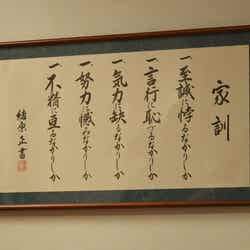 家訓
一、至誠に悖るなかりしか
一、言行に恥づるなかりしか
一、気力に缺るなかりしか
一、努力に憾みなかりしか
一、不精に亘るなかりしか